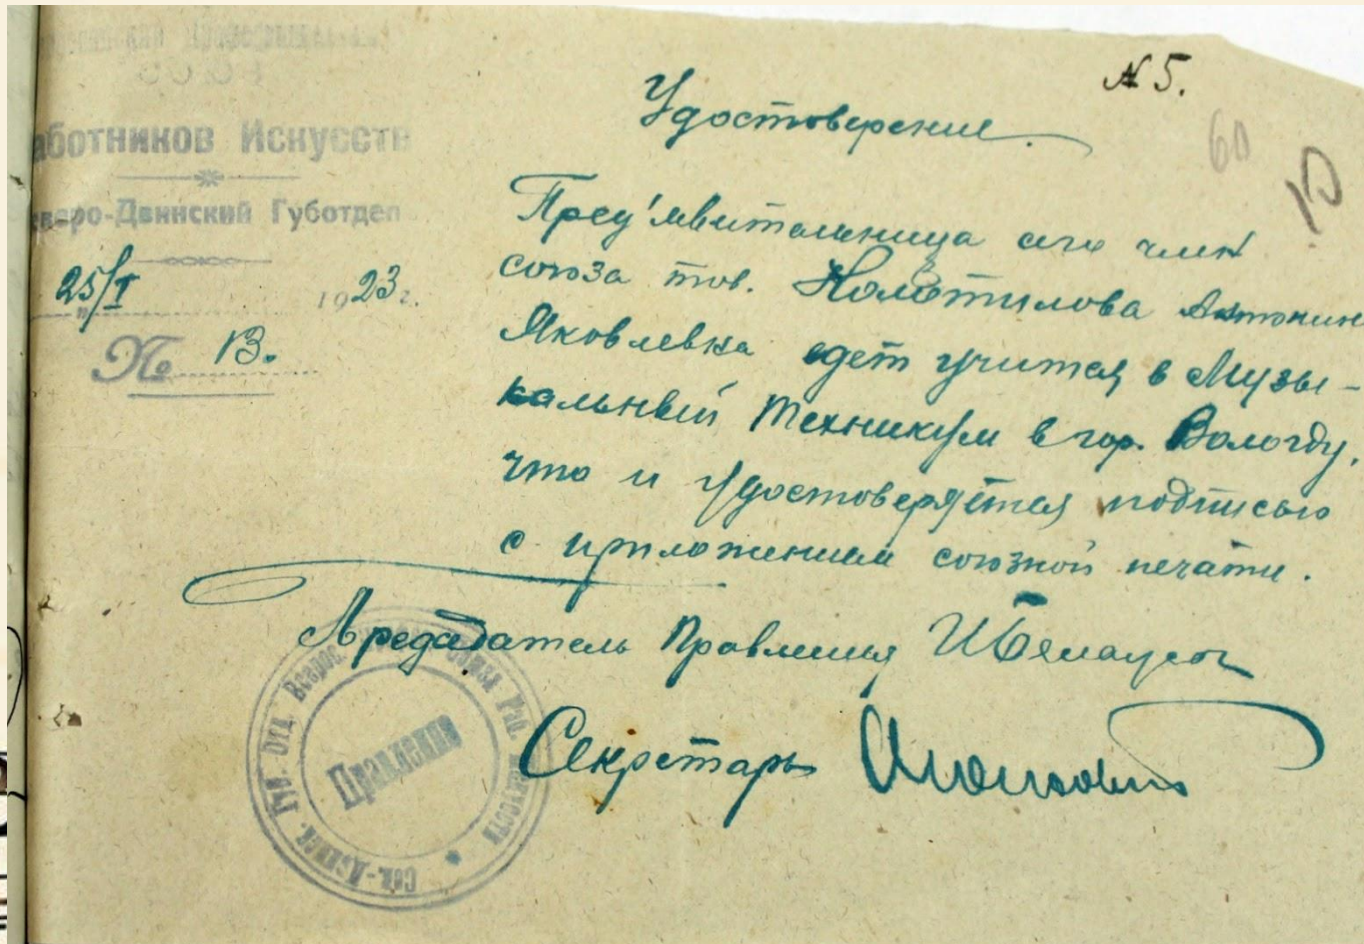 аботников Искусств
веро-Двинский Губотдел
25/I 1923 г.
№ 13.
№ 5.
60
10
Удостоверение.
Пред'явительница сего член
союза тов. Колотилова Антонин
Яковлевна едет учится в Музы-
кальный Техникум в гор. Вологду,
что и удостоверяется подписью
с приложением союзной печати.
Председатель Правления
Секретарь
Сев.-Двинск. Губ. Отд. Всерос. Союза Раб. Искусств
Правление